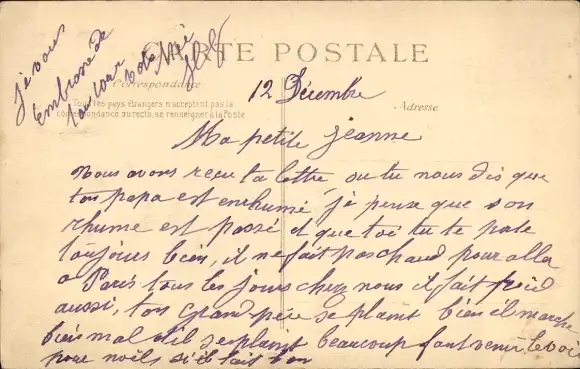 je vous
embrasse de
tou cœur votre
CARTE POSTALE
Correspondance
Tous les pays étrangers n'acceptent pas la
correspondance au recto, se renseigner à la Poste
Adresse
12 Décembre
Ma petite Jeanne
Nous avons reçu ta lettre ou tu nous dis que
ton papa est enrhumé, je pense que son
rhume est passé et que toi tu te porte
toujours bien, il ne fait pas chaud pour alla
a Paris tous les jours chez nous il fait froid
aussi, ton Grand-père se plaint bien il marche
bien mal dil se plaint beaucoup faut venir le voir
pour noëls si il fait bon